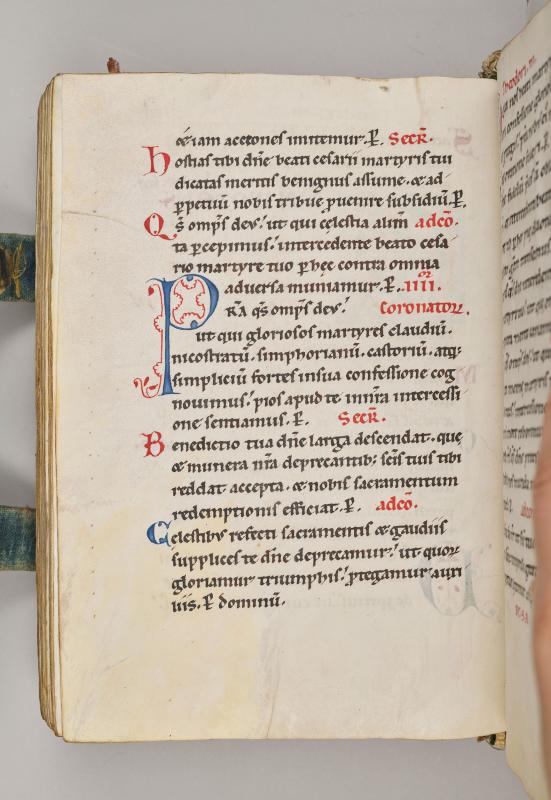 etiam actiones imitemur. P. Secr̃.
Hostias tibi dñe beati cesarii martyris tui
dicatas meritis benignus assume. & ad
ꝑpetuũ nobis tribue ꝓuenire subsidiũ. P.
Qs̃ omp̃s deus. ut qui celestia alim̃ adcõ.
ta ꝑcepimus. intercedente beato cesa
rio martyre tuo ꝑ hec contra omnia
aduersa muniamur. P. .IIII.or
PR̃A qs̃ omp̃s deus. Coronator̃.
ut qui gloriosos martyres claudiũ.
nicostratũ. simphorianũ. castoriũ. atq;
simpliciũ fortes in sua confessione cog
nouimus. pios apud te in nr̃a intercessi
one sentiamus. P. Secr̃.
Benedictio tua dñe larga descendat. que
& munera nr̃a deprecantib; sc̃is tuis tibi
reddat accepta. & nobis sacramentum
redemptionis efficiat. P. adcõ.
Celestibus refecti sacramentis & gaudiis
supplices te dñe deprecamur. ut quor̃
gloriamur triumphis. ꝓtegamur auxi
liis. P. dominũ.